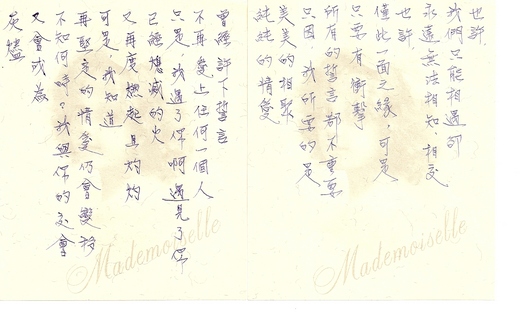 也許
我們只能相遇卻
永遠無法相知、相交
也許
僅此一面之緣，可是
只要有衝擊
所有的誓言都不重要
只因我所要的是
美美的相聚
純純的情愛
曾經許下誓言
不再愛上任何一個人
只是，我遇了你啊遇見了你
已經熄滅的火
又再度燃起且灼灼
可是，我知道
再堅定的情愛仍會變移
不知何時？我與你的交會
又會成為
灰燼
Mademoiselle
Mademoiselle